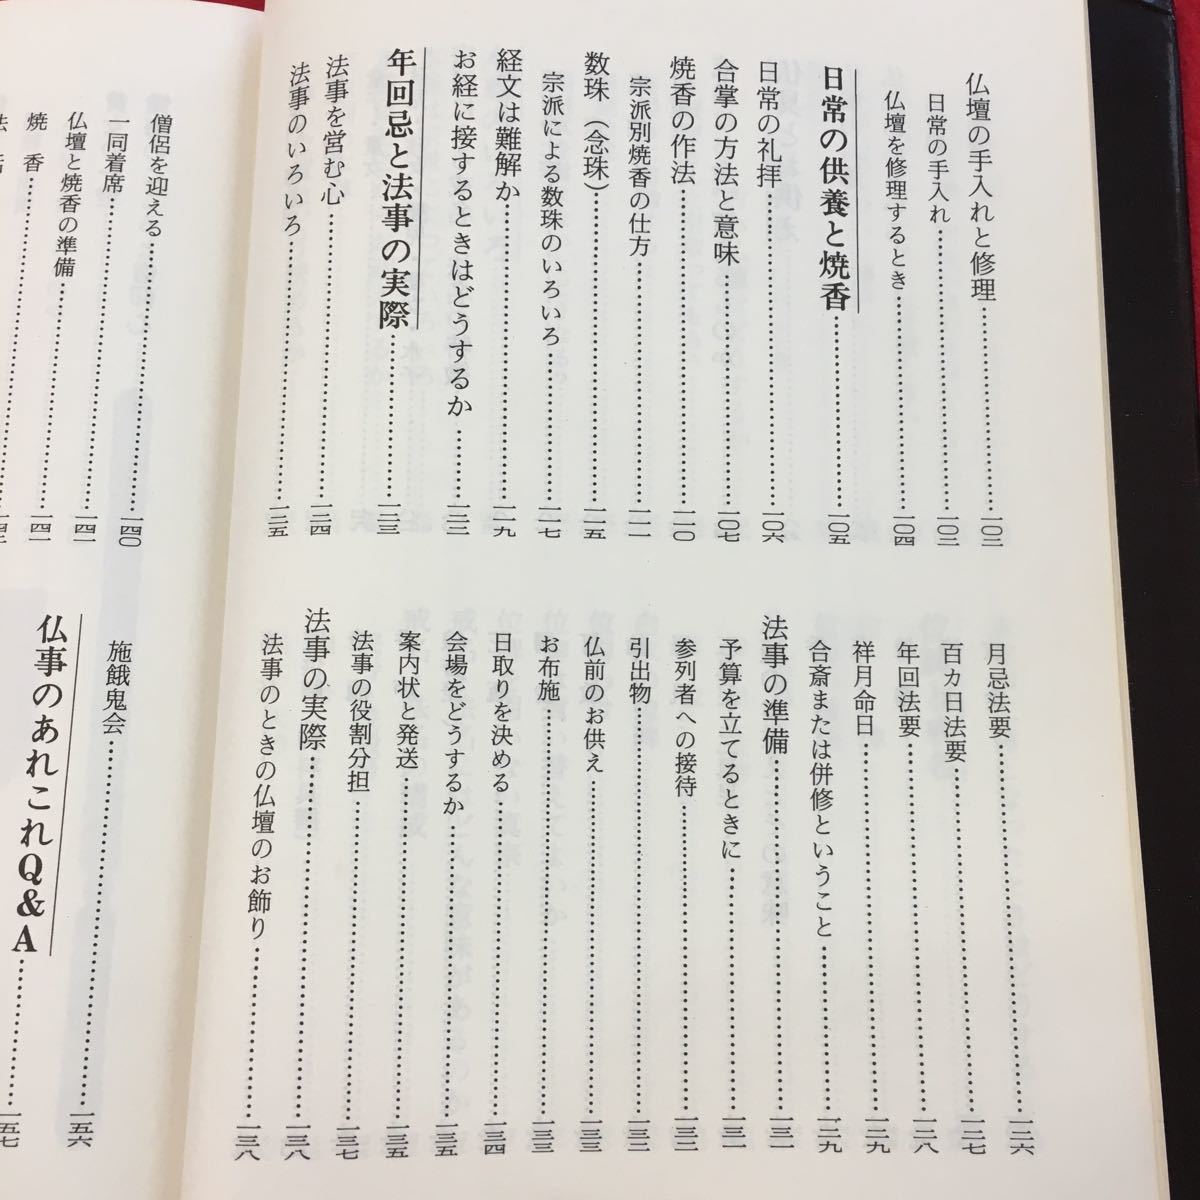 仏壇の手入れと修理……一〇二
日常の手入れ……一〇二
仏壇を修理するとき……一〇四
日常の供養と焼香……一〇五
日常の礼拝……一〇六
合掌の方法と意味……一〇七
焼香の作法……一一〇
宗派別焼香の仕方……一一一
数珠（念珠）……一一五
宗派による数珠のいろいろ……一一七
経文は難解か……一一九
お経に接するときはどうするか……一二二
年回忌と法事の実際……一二三
法事を営む心……一二四
法事のいろいろ……一二五
月忌法要……一二六
百カ日法要……一二七
年回法要……一二八
祥月命日……一二九
合斎または併修ということ……一二九
法事の準備……一三一
予算を立てるときに……一三一
参列者への接待……一三二
引出物……一三二
仏前のお供え……一三三
お布施……一三三
日取りを決める……一三四
会場をどうするか……一三五
案内状と発送……一三五
法事の役割分担……一三七
法事の実際……一三八
法事のときの仏壇のお飾り……一三八
僧侶を迎える……一四〇
一同着席……一四一
仏壇と焼香の準備……一四一
焼　香……一四一
施餓鬼会……一五六
仏事のあれこれQ&A……一五七